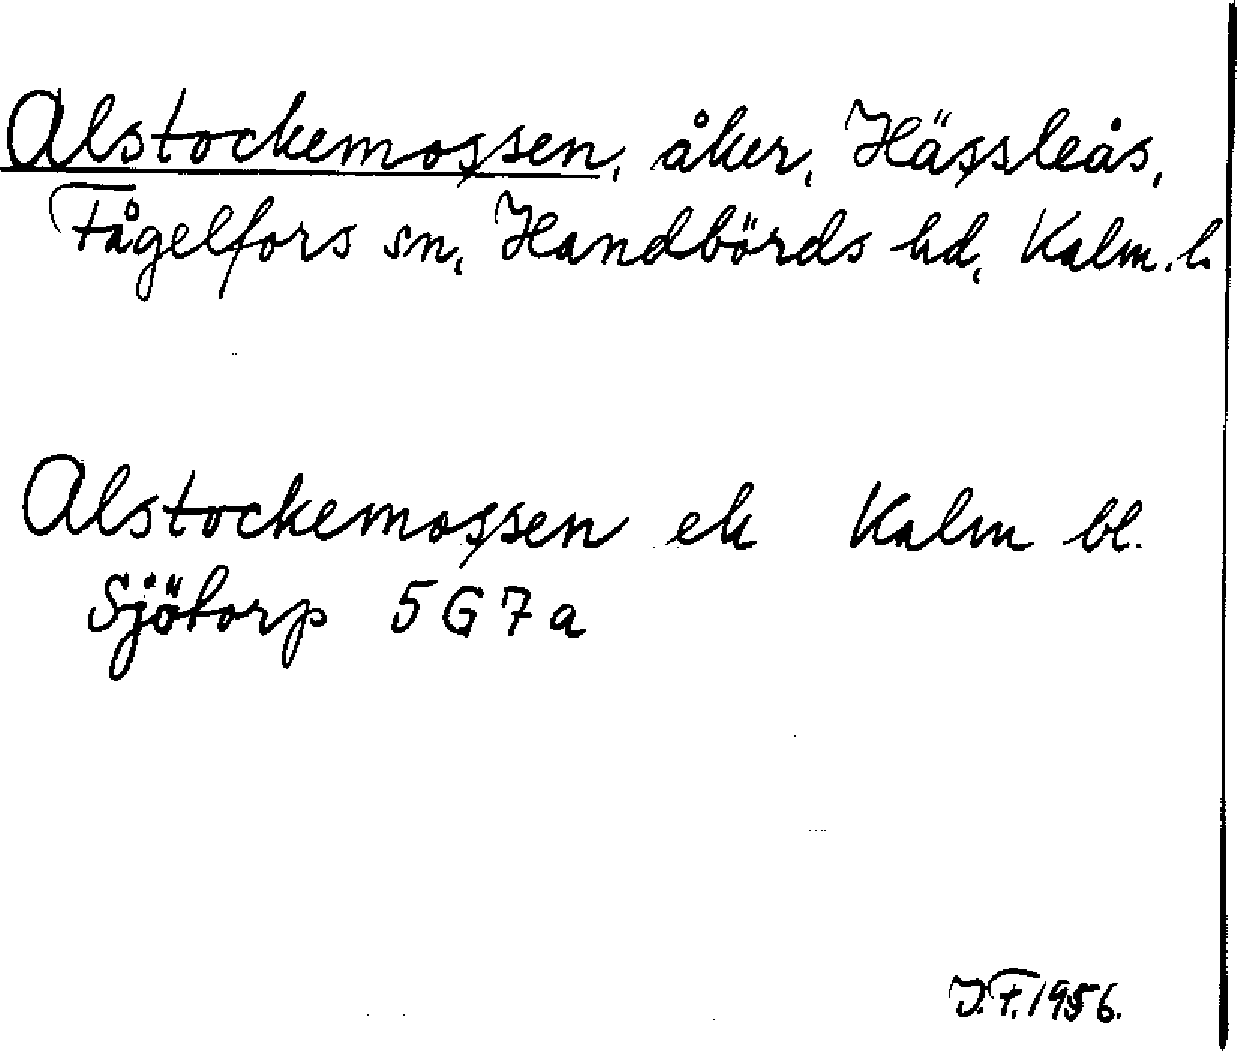 Alstockemossen, åker, Hässleås,
Fågelfors sn, Handbörds hd, Kalm. l.
Alstockemossen ek Kalm bl.
Sjötorp 5 G 7 a
J.F. 1956.